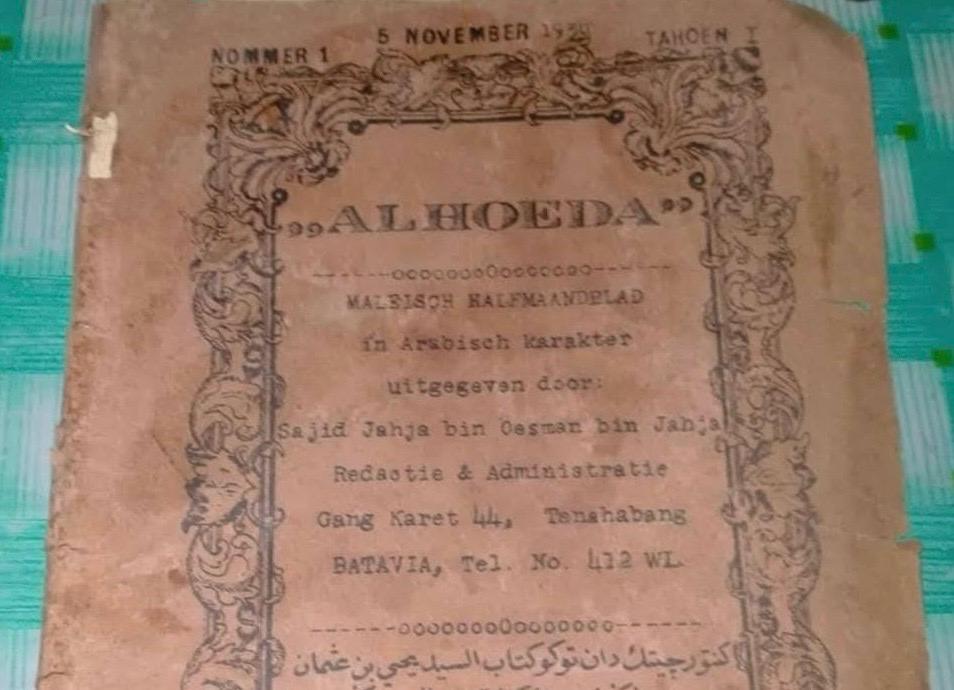 NOMMER 1 5 NOVEMBER TAHOEN I
„ALHOEDA”
------ooooooo0ooooooo------
MALEISCH HALFMAANDBLAD
in Arabisch karakter
uitgegeven door:
Sajid Jahja bin Oesman bin Jahja
Redactie & Administratie
Gang Karet 44, Tenahabang
BATAVIA, Tel. No. 412 WL.
------ooooooo0ooooooo------
كنتور چيتق دان توكو كتاب السيد يحيي بن عثمان